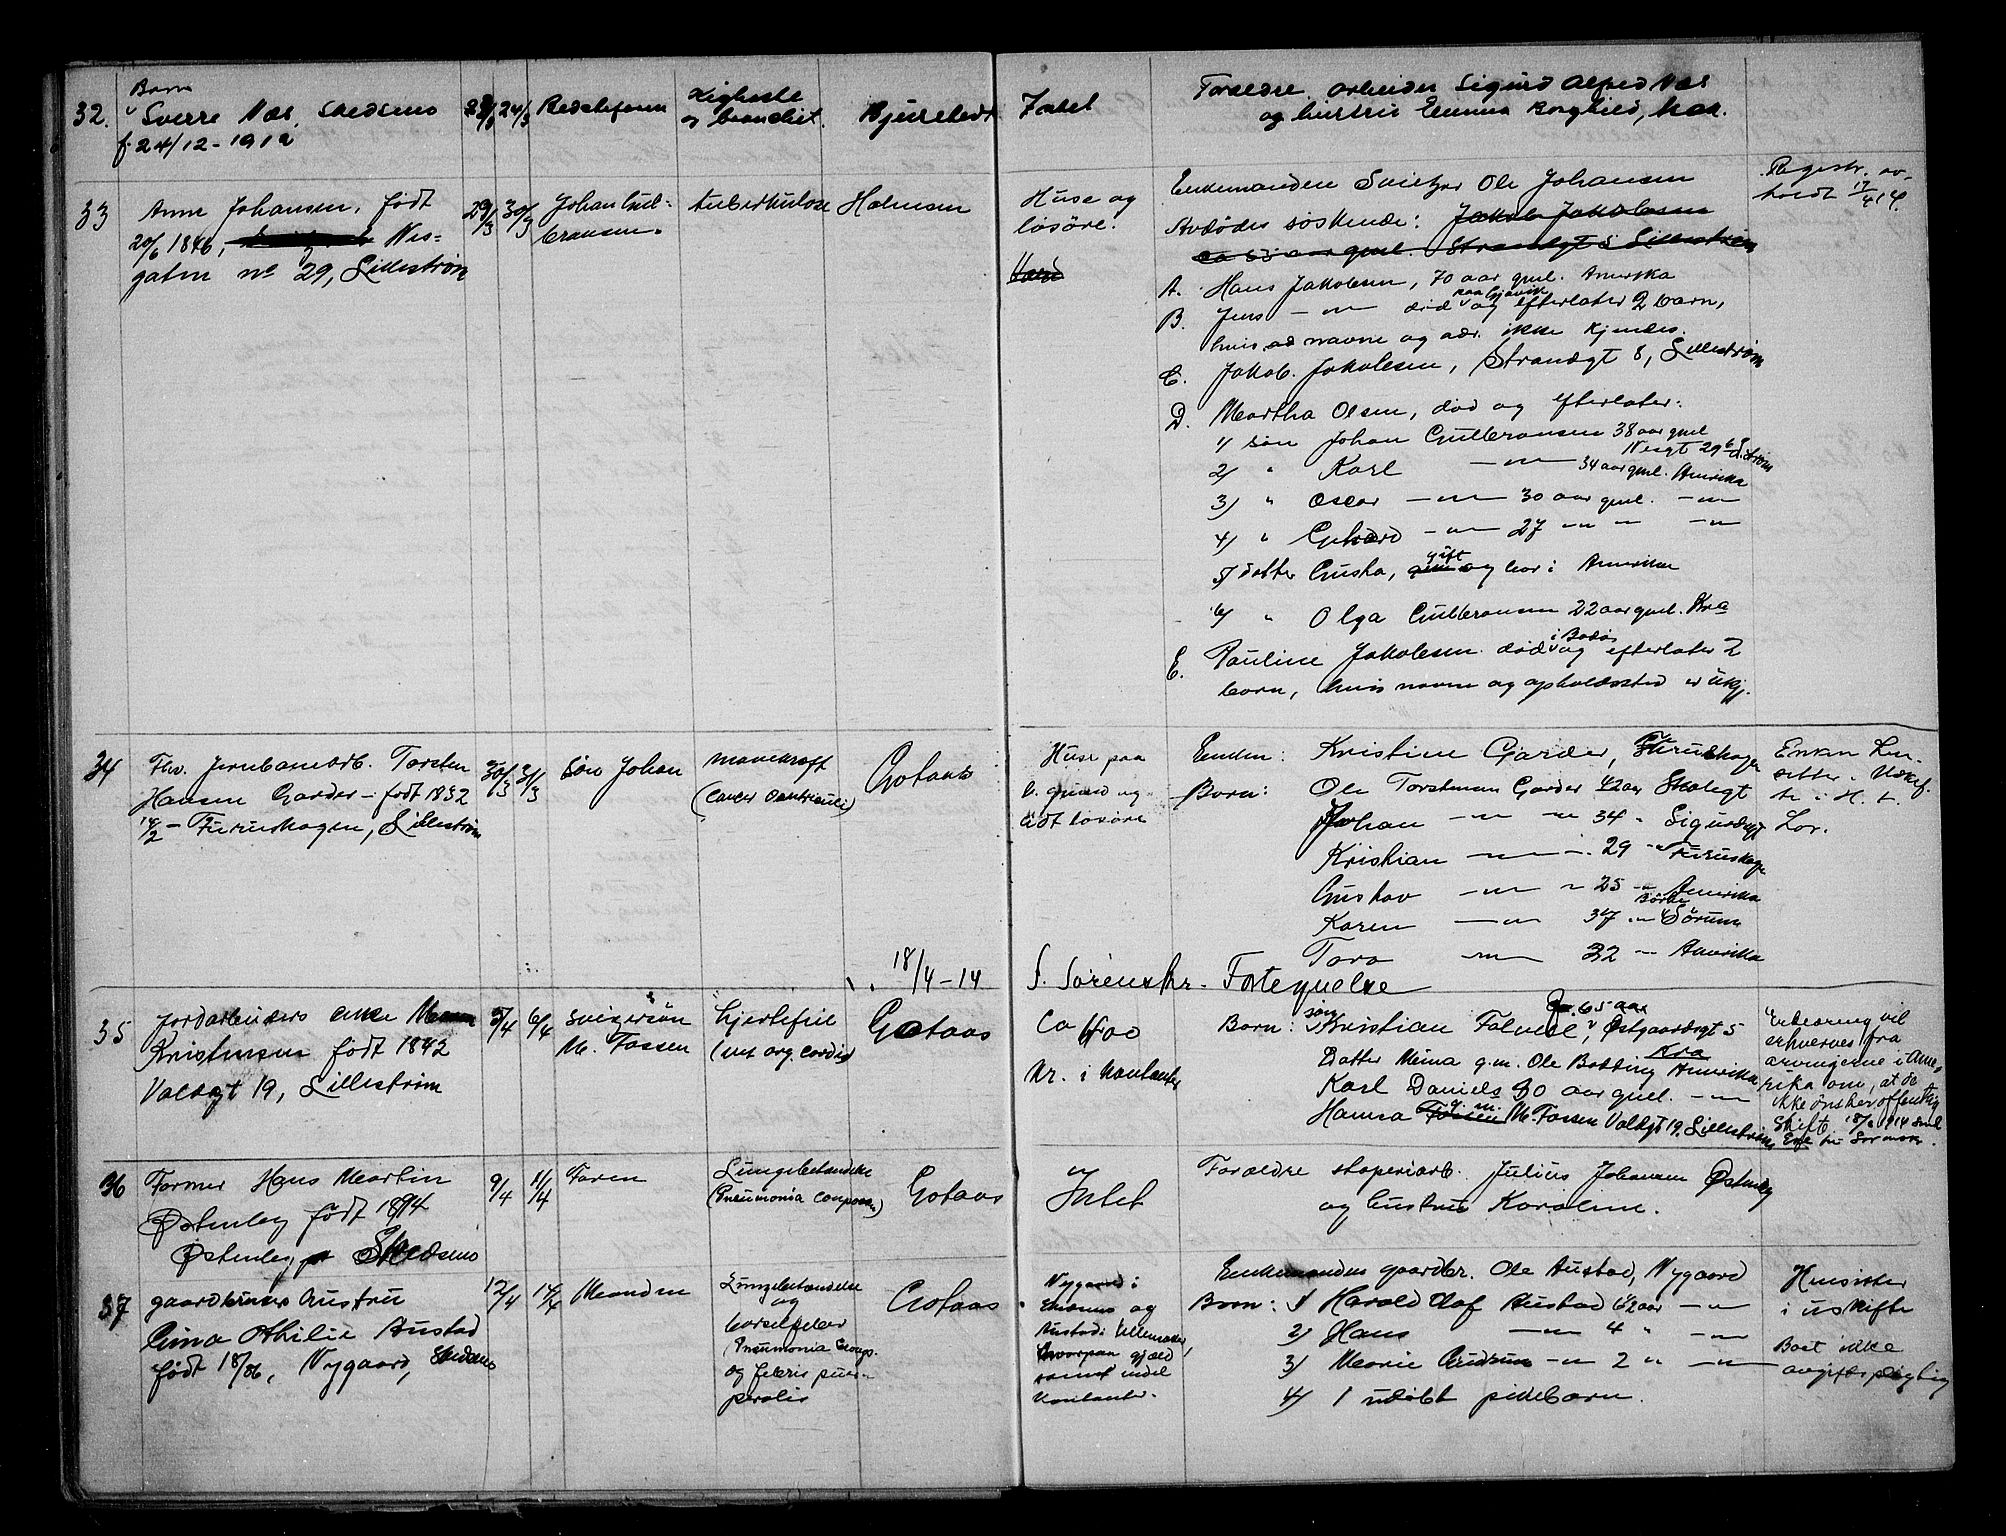 32.
Barn
Sverre Næs, Skedsmo
f. 24/12-1912
24/3
Bedstefaren
Kighoste
og bronchit.
Bjurstedt
Intet
Forældre arbeider Sigurd Alfred Næs
og hustru Emma Borghild,
33
Anne Johansen, født
20/6 1846, Nes-
gaten no 29, Lillestrøm
29/3 30/3
Johan Gul-
bransen.
tuberkulose
Holmsen
Huse og
løsøre.
Enkemanden Ole Johansen
Avdødes søskende: Jakob Jakobsen
ca 53 aar gml. Strandgt 8 Lillestrøm
A. Hans Jakobsen, 70 aar gml. Amerika
B. Jens -"- død paa Gjøvik og efterlater 2 barn,
hvis navne og adr. ikke kjendes.
C. Jakob Jakobsen, Strandgt 8, Lillestrøm
D. Martha Olsen, død og efterlater:
1) søn Johan Gulbransen 38 aar gml
Nesgt 29 Lstrøm
2) " Karl -"- 34 aar gml. Amerika
3) " Oscar -"- 30 aar gml. -"-
4) " -"- 27 -"- " -"-
5) datter Gusta, gift og bor i Amerika
6) " Olga Gulbransen 22 aar gml. Kra
E. Pauline Jakobsen død i Bodø og efterlater 2
barn, hvis navne og opholdssted er ukj.
Registr. av-
holdt 17/4 14.
34
Fhv. jernbanearb. Torsten
Hansen Garder - født 1832
14/2 - Furuskogen, Lillestrøm
30/3 31/3
søn Johan
mavekræft
(cancer ventriculi)
Gotaas
18/4-14
Huse paa
b. grund og
lidt løsøre
Enken: Kristine Garder, Furuskogen
Børn: Ole Torstensen Garder 42 aar Skolegt
Johan -"- -"- 34 " Sigurdsgt
Kristian -"- -"- 29 -"- Furuskogen
Gustav -"- -"- 25 -"- Amerika
Karen -"- 37 -"- Sørum
Tora -"- 32 -"- Amerika
Enken
sitter i uskif-
te i H. t.
Lov.
S. Sørenskr. Fortegnelse
35
Jordarbeiders enke
Kristensen født 1842
Voldgt 19, Lillestrøm
5/4 6/4
svigersøn
M. Fossen
hjertefeil
(vit org. cordis)
Gotaas
Ca 400
kr. i kontanter
Børn: søn Kristian Østgaardsgt 5
Kra
Datter Mina g.m. Ole Bakking Amerika
Karl Daniels 30 aar gml. -"-
Hanna g. m. M. Fossen Voldgt 19, Lillestrøm
Erklæring vil
erhverves fra
arvingerne i Ame-
rika om, at de
ikke ønsker offentlig
Skifte.
36
Former Hans Martin
Østenby født 1894
Østenby Skedsmo
9/4 11/4
Faren
Lungebetændelse
Gotaas
Intet
Forældre støperiarb. Julius Johansen Østenby
og hustru Karoline.
37
gaardbruker hustru
Gina Othilie Austad
født 18/86, Nygaard, Skedsmo
12/4 14/4
Manden
Lungebetændelse
og
barselfeber
(Pneumonia croup.
og febris puer-
peralis
Gotaas
Nygaard i
Skedsmo og
Austad i Ullensaker,
hvorpaa gjæld
samt endel
kontanter.
Enkemanden gaardbr. Ole Austad, Nygaard
Børn: 1) Harald Olaf Austad 6½ aar -"-
2) Hans -"- 4 " -"-
3) Marie Gudrun -"- 2 " -"-
4) 1 udøbt pikebarn.
Hensitter
i uskifte
Boet ikke
avgiftspligtig